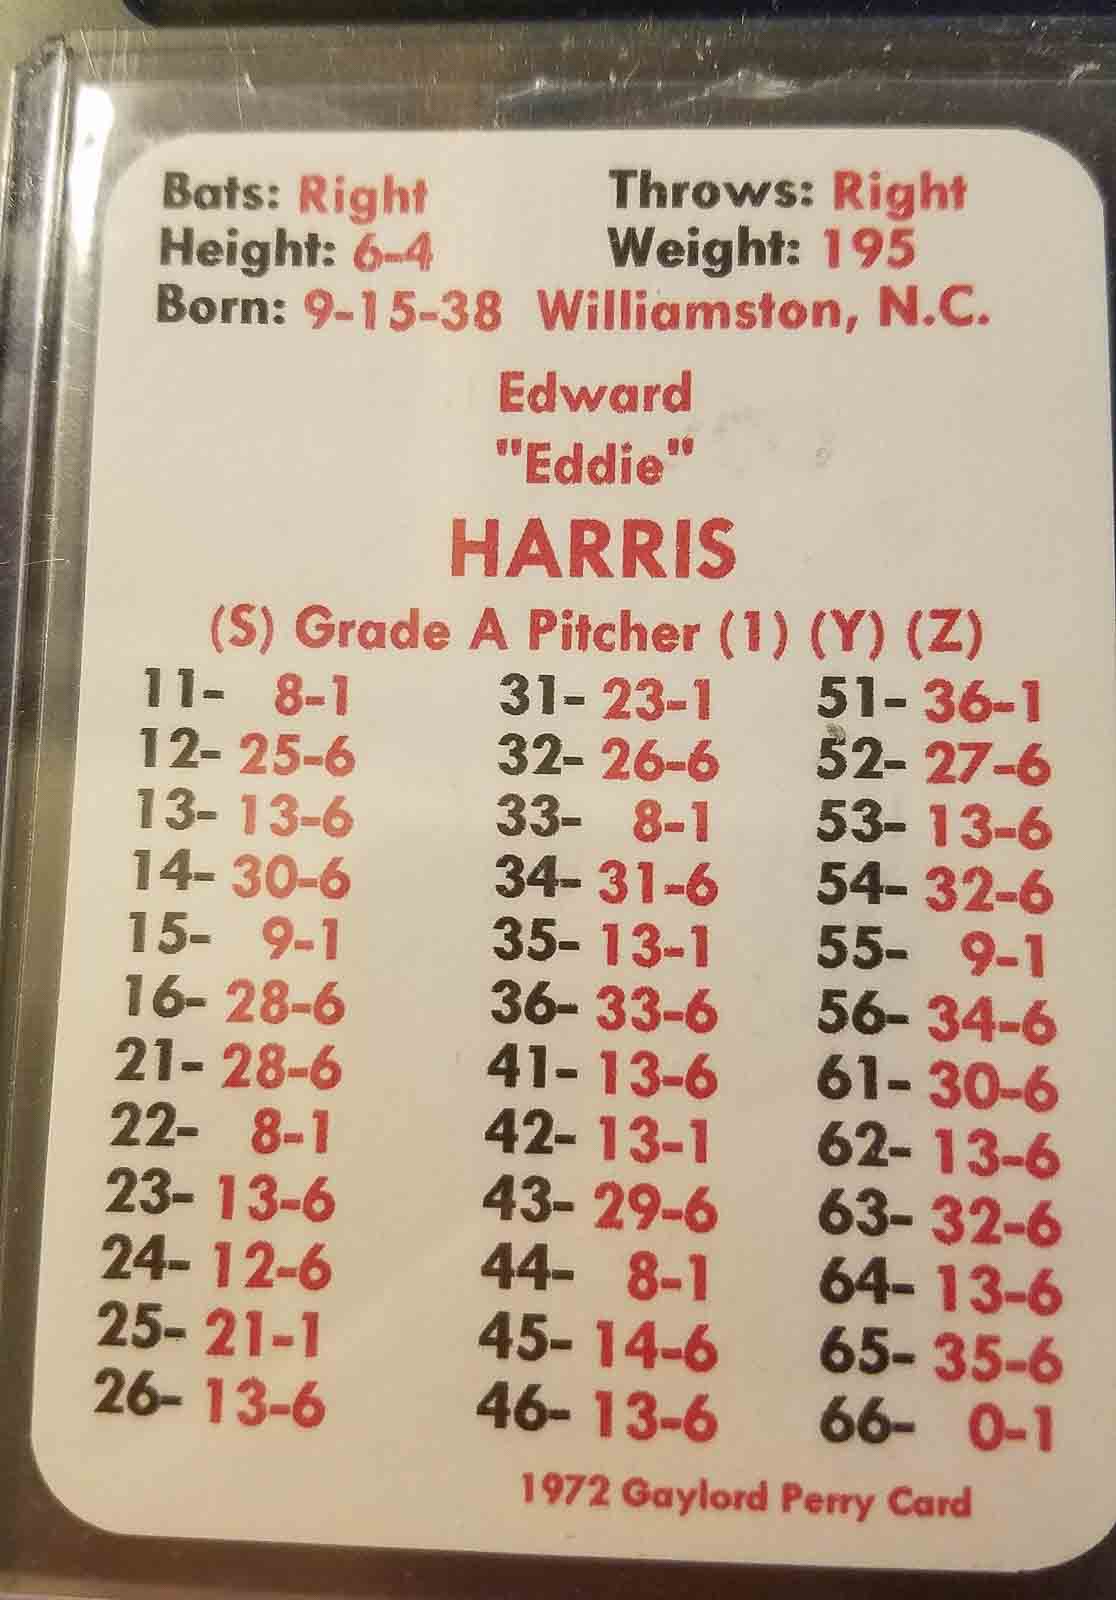 Bats: Right Throws: Right
Height: 6-4 Weight: 195
Born: 9-15-38 Williamston, N.C.
Edward
"Eddie"
HARRIS
(S) Grade A Pitcher (1) (Y) (Z)
11- 8-1 31- 23-1 51- 36-1
12- 25-6 32- 26-6 52- 27-6
13- 13-6 33- 8-1 53- 13-6
14- 30-6 34- 31-6 54- 32-6
15- 9-1 35- 13-1 55- 9-1
16- 28-6 36- 33-6 56- 34-6
21- 28-6 41- 13-6 61- 30-6
22- 8-1 42- 13-1 62- 13-6
23- 13-6 43- 29-6 63- 32-6
24- 12-6 44- 8-1 64- 13-6
25- 21-1 45- 14-6 65- 35-6
26- 13-6 46- 13-6 66- 0-1
1972 Gaylord Perry Card